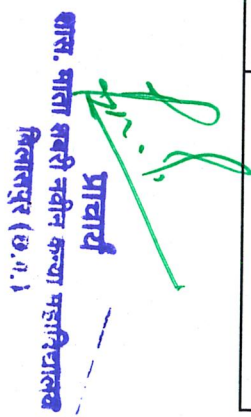 प्राचार्य
शास. माता शबरी नवीन कन्या महाविद्यालय
बिलासपुर (छ.ग.)